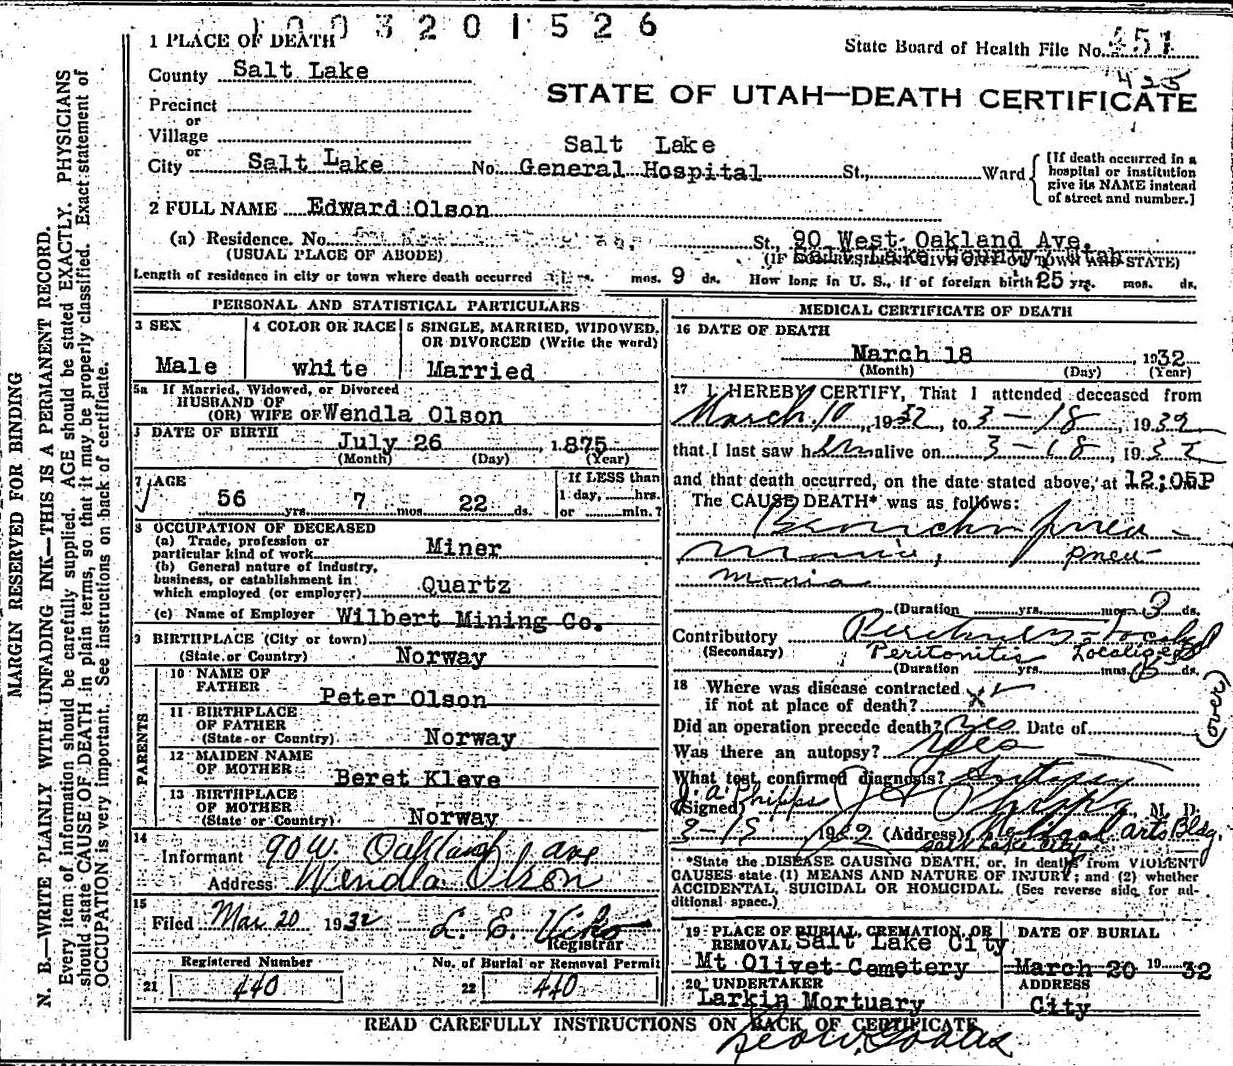 1003201526
1 PLACE OF DEATH
State Board of Health File No. 451
425
County Salt Lake
STATE OF UTAH—DEATH CERTIFICATE
Precinct
or
Village
or
City Salt Lake No. Salt Lake General Hospital St., Ward
[If death occurred in a hospital or institution give its NAME instead of street and number.]
2 FULL NAME Edward Olson
(a) Residence. No. St., 90 West Oakland Ave.
(USUAL PLACE OF ABODE) Salt Lake County, Utah
Length of residence in city or town where death occurred yrs. mos. 9 ds. How long in U. S., if of foreign birth 25 yrs. mos. ds.
PERSONAL AND STATISTICAL PARTICULARS
3 SEX
Male
4 COLOR OR RACE
white
5 SINGLE, MARRIED, WIDOWED, OR DIVORCED (Write the word)
Married
5a If Married, Widowed, or Divorced
HUSBAND OF
(OR) WIFE OF Wendla Olson
DATE OF BIRTH
July 26, 1875
(Month) (Day) (Year)
7 AGE
56 yrs. 7 mos. 22 ds.
If LESS than
1 day, hrs.
or min.?
8 OCCUPATION OF DECEASED
(a) Trade, profession or
particular kind of work Miner
(b) General nature of industry,
business, or establishment in
which employed (or employer) Quartz
(c) Name of Employer Wilbert Mining Co.
9 BIRTHPLACE (City or town)
(State or Country) Norway
PARENTS
10 NAME OF
FATHER Peter Olson
11 BIRTHPLACE
OF FATHER
(State or Country) Norway
12 MAIDEN NAME
OF MOTHER Beret Kleve
13 BIRTHPLACE
OF MOTHER
(State or Country) Norway
14
Informant 90 W. Oakland Ave
Address Wendla Olson
15
Filed Mar 20 1932 L. E. Viko
Registrar
Registered Number
21 440
No. of Burial or Removal Permit
22 440
MEDICAL CERTIFICATE OF DEATH
16 DATE OF DEATH
March 18, 1932
(Month) (Day) (Year)
17 I HEREBY CERTIFY, That I attended deceased from
March 10, 1932, to 3-18, 1932
that I last saw him alive on 3-18, 1932
and that death occurred, on the date stated above, at 12:05P
The CAUSE DEATH* was as follows:
Broncho pneu-
monia, pneu-
monia
(Duration yrs. mos. 3 ds.
Contributory Peritonitis - Localized
(Secondary) Peritonitis Localized
(Duration yrs. mos. ds.
18 Where was disease contracted
if not at place of death?
(over)
Did an operation precede death? Yes Date of
Was there an autopsy? Yes
What test confirmed diagnosis? Autopsy
J. A. Phipps
(Signed) Phipps, M. D.
1932 (Address) Medical Arts Bldg.
Salt Lake City
*State the DISEASE CAUSING DEATH, or, in deaths from VIOLENT
CAUSES state (1) MEANS AND NATURE OF INJURY; and (2) whether
ACCIDENTAL, SUICIDAL OR HOMICIDAL. (See reverse side for ad-
ditional space.)
19 PLACE OF BURIAL, CREMATION, OR
REMOVAL Salt Lake City
Mt Olivet Cemetery
DATE OF BURIAL
March 20 1932
20 UNDERTAKER
Larkin Mortuary
ADDRESS
City
READ CAREFULLY INSTRUCTIONS ON BACK OF CERTIFICATE
MARGIN RESERVED FOR BINDING
N. B.—WRITE PLAINLY WITH UNFADING INK—THIS IS A PERMANENT RECORD.
Every item of information should be carefully supplied. AGE should be stated EXACTLY. PHYSICIANS
should state CAUSE OF DEATH in plain terms, so that it may be properly classified. Exact statement of
OCCUPATION is very important. See instructions on back of certificate.